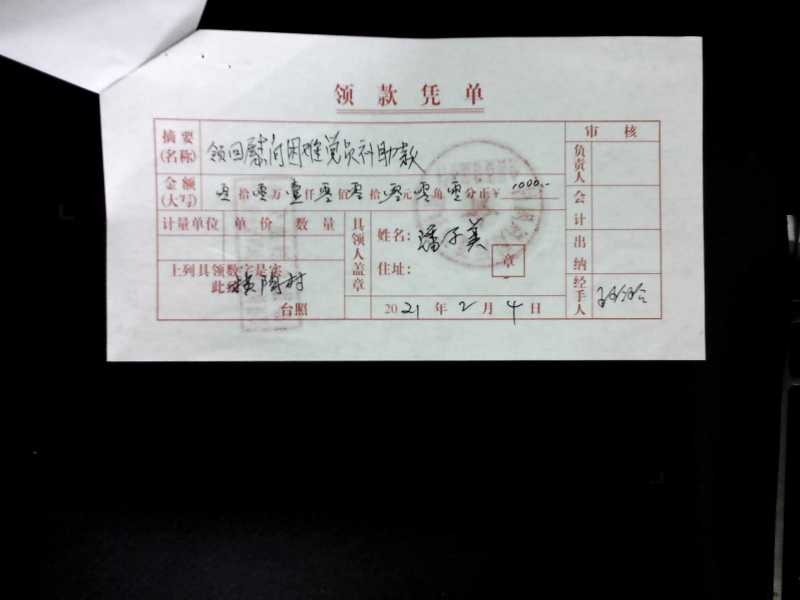 领款凭单
摘要(名称) 领回慰问困难党员补助款
审核
负责人
金额(大写) 零拾零万壹仟零佰零拾零元零角零分正¥1000.-
会计
计量单位 单价 数量
具领人盖章
姓名:潘子美
出纳
上列具领数字是实
住址:
章
此致 横陶村
经手人
台照
2021年2月4日